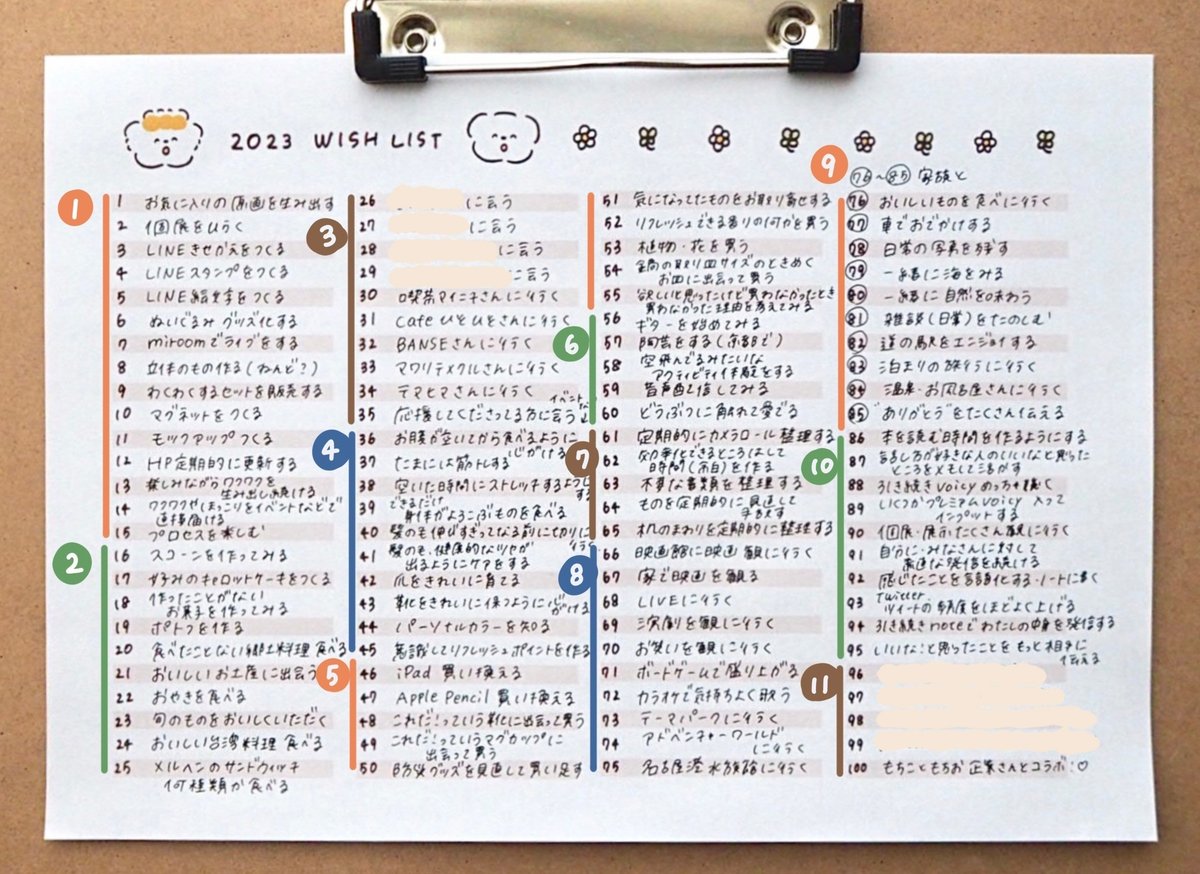 2023 WISH LIST
1
1 お気に入りの原画を生み出す
2 個展をひらく
3 LINEきせかえをつくる
4 LINEスタンプをつくる
5 LINE絵文字をつくる
6 ぬいぐるみ グッズ化する
7 miroomでライブをする
8 立体のもの作る(ねんど?)
9 わくわくするセットを販売する
10 マグネットをつくる
11 モックアップつくる
12 HP定期的に更新する
13 楽しみながらワクワクを
生み出し続ける
14 ワクワクやほっこりをイベントなどで
直接届ける
15 プロセスを楽しむ
2
16 スコーンを作ってみる
17 好みのキャロットケーキをつくる
18 作ったことがない
お菓子を作ってみる
19 ポトフを作る
20 食べたことない郷土料理 食べる
21 おいしいお土産に出会う
22 おやきを食べる
23 旬のものをおいしくいただく
24 おいしい台湾料理 食べる
25 メルヘンのサンドウィッチ
何種類か食べる
3
26 に会う
27 に会う
28 に会う
29 に会う
30 喫茶マイニチさんに行く
31 cafeひとひとさんに行く
32 BANSEさんに行く
33 マワリテメクルさんに行く
34 テマヒマさんに行く
35 応援してくださってる方に会う イベントなど
4
36 お腹が空いてから食べるように
心がける
37 たまには筋トレする
38 空いた時間にストレッチするようにする
39 できるだけ
身体がよろこぶものを食べる
40 髪のも伸びすぎってなる前に切りに行く
41 髪のも、健康的なツヤが
出るようにケアをする
42 爪をきれいに育てる
43 靴をきれいに保つように心がける
44 パーソナルカラーを知る
45 意識してリフレッシュポイントを作る
5
46 iPad 買い換える
47 Apple Pencil 買い換える
48 これだ!っていう靴に出会って買う
49 これだ!っていうマグカップに
出会って買う
50 防災グッズを見直して買い足す
51 気になってたものをお取り寄せする
52 リフレッシュできる香りの何かを買う
53 植物・花を買う
54 鍋の取り皿サイズのときめく
お皿に出会って買う
55 欲しいと思ったけど買わなかったとき
買わなかった理由を考えてみる
6
56 ギターを始めてみる
57 陶芸をする(京都で)
58 空飛んでるみたいな
アクティビティ体験をする
59 音声配信してみる
60 どうぶつに触れて愛でる
7
61 定期的にカメラロール整理する
62 効率化できるところはして
時間(余白)を作る
63 不要な書類を整理する
64 ものを定期的に見直して
手放す
65 机のまわりを定期的に整理する
8
66 映画館に映画 観に行く
67 家で映画を観る
68 LIVEに行く
69 演劇を観に行く
70 お笑いを観に行く
71 ボードゲームで盛り上がる
72 カラオケで気持ちよく歌う
73 テーマパークに行く
74 アドベンチャーワールド
に行く
75 名古屋港水族館に行く
9
76〜85 家族と
76 おいしいものを食べに行く
77 車でおでかけする
78 日常の写真を残す
79 一緒に海をみる
80 一緒に自然を味わう
81 雑談(日常)をたのしむ
82 道の駅をエンジョイする
83 泊まりの旅行に行く
84 温泉・お風呂屋さんに行く
85 "ありがとう"をたくさん伝える
10
86 本を読む時間を作るようにする
87 話し方が好きな人のいいなと思った
ところをメモして活かす
88 引き続きVoicyめっちゃ聴く
89 いくつかプレミアムVoicy 入って
インプットする
90 個展・展示たくさん観に行く
91 自分に・みなさんに対して
素直な発信を続ける
92 感じたことを言語化する・ノートに書く
93 twitter
ツイートの頻度をほどよく上げる
94 引き続きnoteでわたしの中身を発信する
95 いいな!と思ったことをもっと相手に
伝える
11
96
97
98
99
100 もちこともちお 企業さんとコラボ!♡